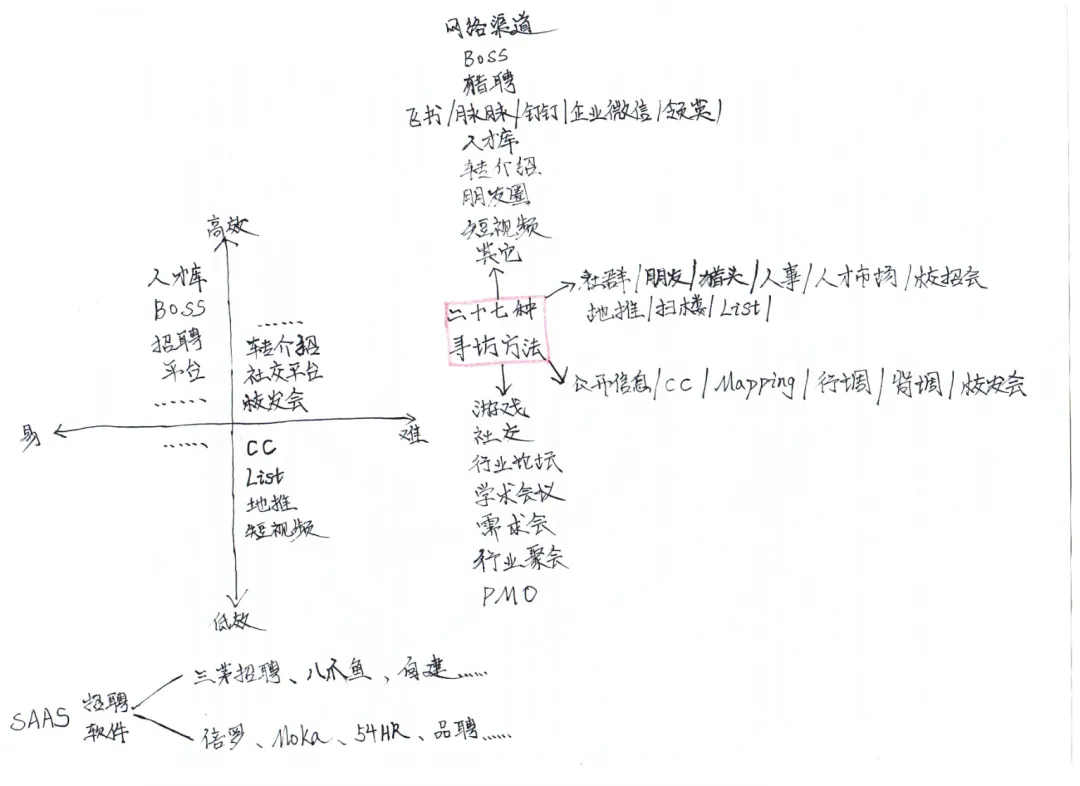 网络渠道
BOSS
猎聘
飞书/脉脉/钉钉|企业微信/领英|
人才库
转介绍
朋友圈
短视频
其它
社群/朋友/猎头/人事/人才市场/校招会
地推/扫楼/List|
二十七种
寻访方法
公开信息/CC/Mapping/行调/背调/校友会
游戏
社交
行业论坛
学术会议
需求会
行业聚会
PMO
高效
人才库
BOSS
招聘
平台
……
……
转介绍
社交平台
校友会
易
难
……
CC
List
地推
短视频
低效
SAAS 招聘
软件
三茅招聘、八爪鱼，自建……
倍罗、Moka、54HR、品聘……